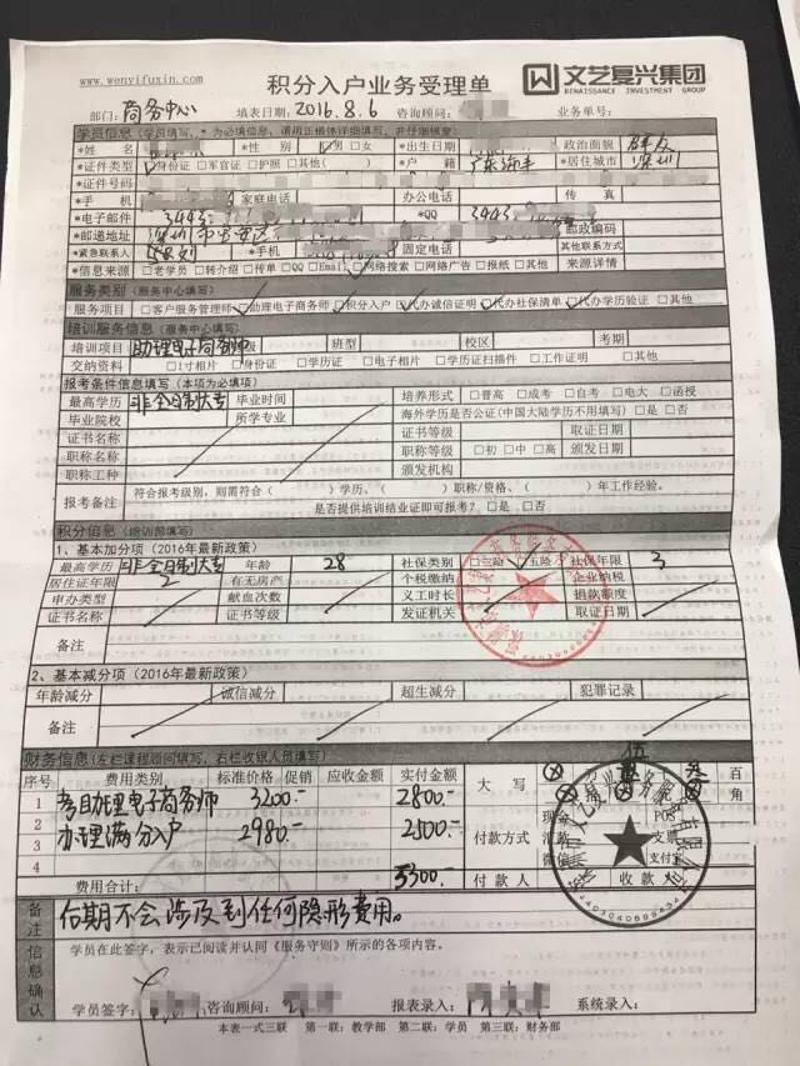 www.wenyifuxin.com 积分入户业务受理单 文艺复兴集团
RENAISSANCE INVESTMENT GROUP
部门：商务中心 填表日期：2016.8.6 咨询顾问： 业务单号：
学员信息（学员填写，*为必填信息，请用正楷体详细填写，并仔细核查）
*姓名 *性别 □男 □女 *出生日期 政治面貌 群众
*证件类型 □身份证 □军官证 □护照 □其他( ) *户籍 广东海丰 *居住城市 深圳
*证件号码
*手机 家庭电话 办公电话 传真
*电子邮件 3443 *QQ 3443
*邮递地址 深圳市 邮政编码
*紧急联系人 *手机 固定电话 其他联系方式
*信息来源 □老学员 □转介绍 □传单 □QQ □Email □网络搜索 □网络广告 □报纸 □其他 来源详情
服务类别（服务中心填写）
服务项目 □客户服务管理师 □助理电子商务师 □积分入户 □代办诚信证明 □代办社保清单 □代办学历验证 □其他
培训服务信息（服务中心填写）
培训项目 助理电子商务师 班型 校区 考期
交纳资料 □1寸相片 □身份证 □学历证 □电子相片 □学历证扫描件 □工作证明 □其他
报考条件信息填写（本项为必填项）
最高学历 非全日制大专 毕业时间 培养形式 □普高 □成考 □自考 □电大 □函授
毕业院校 所学专业 海外学历是否公证(中国大陆学历不用填写) □是 □否
证书名称 证书等级 取证日期
职称名称 职称等级 □初 □中 □高 颁发日期
职称工种 颁发机构
报考备注 符合报考级别，则需符合（ ）学历、（ ）职称/资格、（ ）年工作经验。
是否提供培训结业证即可报考？□是 □否
积分信息（培训部填写）
1、基本加分项（2016年最新政策）
最高学历 非全日制大专 年龄 28 社保类别 □三险 □五险 社保年限 3
居住证年限 2 有无房产 个税缴纳 企业纳税
申办类型 献血次数 义工时长 捐款额度
证书名称 证书等级 发证机关 取证日期
备注
2、基本减分项（2016年最新政策）
年龄减分 诚信减分 超生减分 犯罪记录
备注
财务信息（左栏课程顾问填写，右栏收银人员填写）
序号 费用类别 标准价格 促销 应收金额 实付金额 大写 伍 叁 百
角
1 考助理电子商务师 3200.- 2800.-
2 办理满分入户 2980.- 2500.-
3 付款方式 现金 POS 汇款 支票 微信 支付宝
4
费用合计： 5300.- 付款人 收款人
备注 后期不会涉及到任何隐形费用。
信息确认 学员在此签字，表示已阅读并认同《服务守则》所示的各项内容。
学员签字： 咨询顾问： 报表录入： 系统录入：
本表一式三联 第一联：教学部 第二联：学员 第三联：财务部